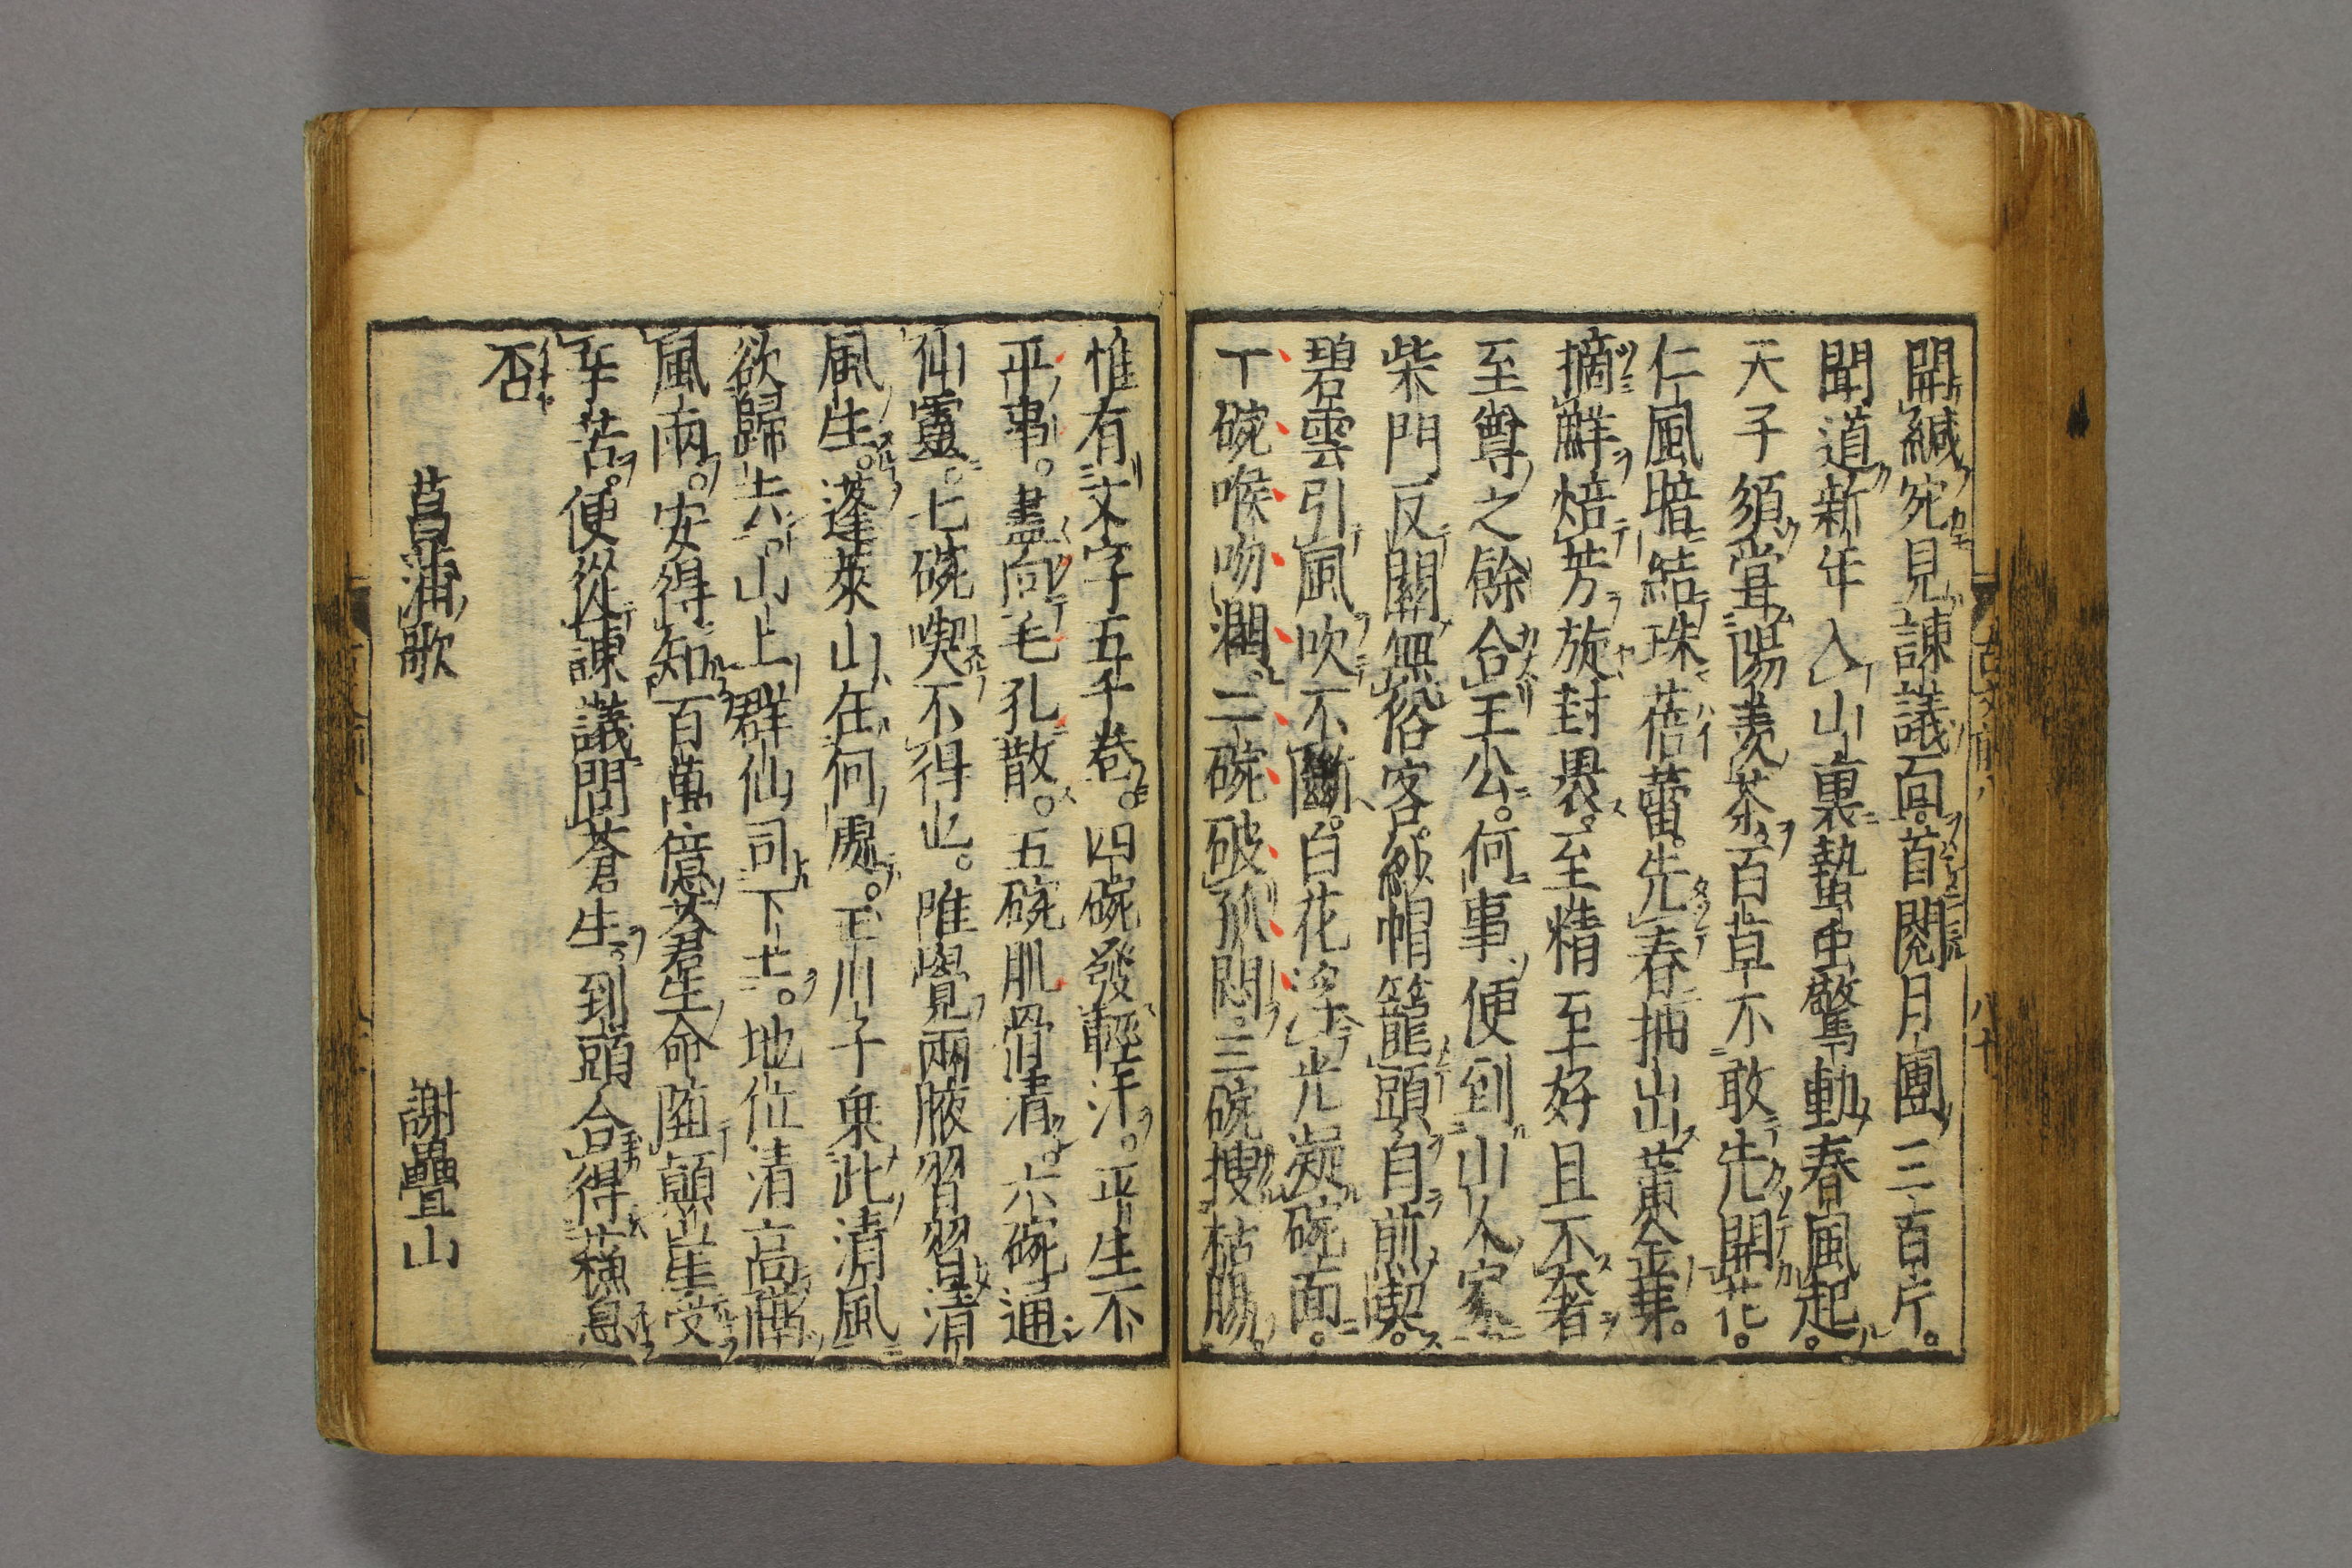 開緘宛見諌議面首閱月團三百片。
聞道新年入山裏蟄虫驚動春風起。
天子須甞陽羨茶百草不敢先開花。
仁風暗結珠蓓蕾。先春抽出黃金芽。
摘鮮焙芳旋封裹。至精至好且不奢
至尊之餘合王公。何事便到山人家
柴門反關無俗客。紗帽籠頭自煎喫。
碧雲引風吹不斷。白花浮光凝碗面。
一碗喉吻潤。二碗破孤悶。三碗搜枯腸。
惟有文字五千卷。四碗發輕汗。平生不
平事。盡向毛孔散。五碗肌骨清。六碗通
仙靈。七碗喫不得也。唯覺兩腋習習清
風生。蓬萊山在何處。玉川子乗此清風
欲歸去。山上群仙司下土。地位清高隔
風雨。安得知百萬億蒼生命墮顛崖受
辛苦。便從諌議問蒼生。到頭合得蘓息
否
菖蒲歌 謝疊山
古文前 八十